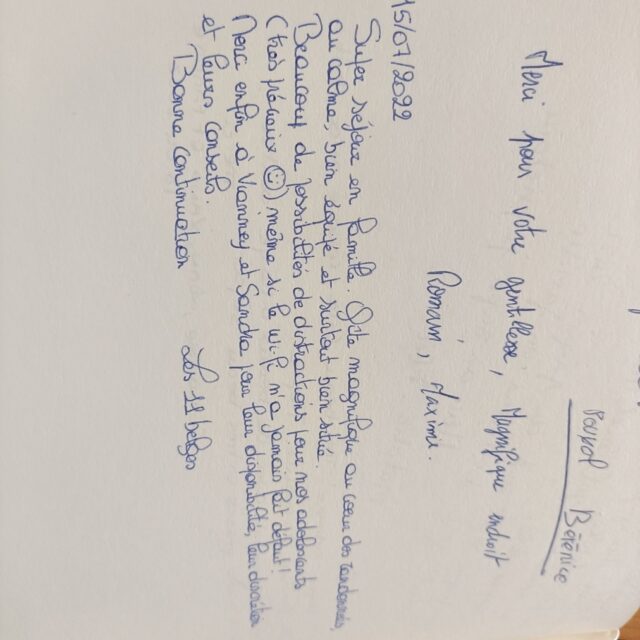 Bérénice
Merci pour votre gentillesse, Magnifique endroit
Romain, Maxime.
15/07/2022
Super séjour en famille. Gîte magnifique au cœur des randonnées,
au calme, bien équipé et surtout bien situé.
Beaucoup de possibilités de distractions pour nos adolescents
(très précieux ☺) même si le wi-fi n'a jamais fait défaut!
Merci enfin à Vianney et Sandra pour leur disponibilité, leur discrétion
et leurs conseils.
Bonne continuation
Les 11 belges